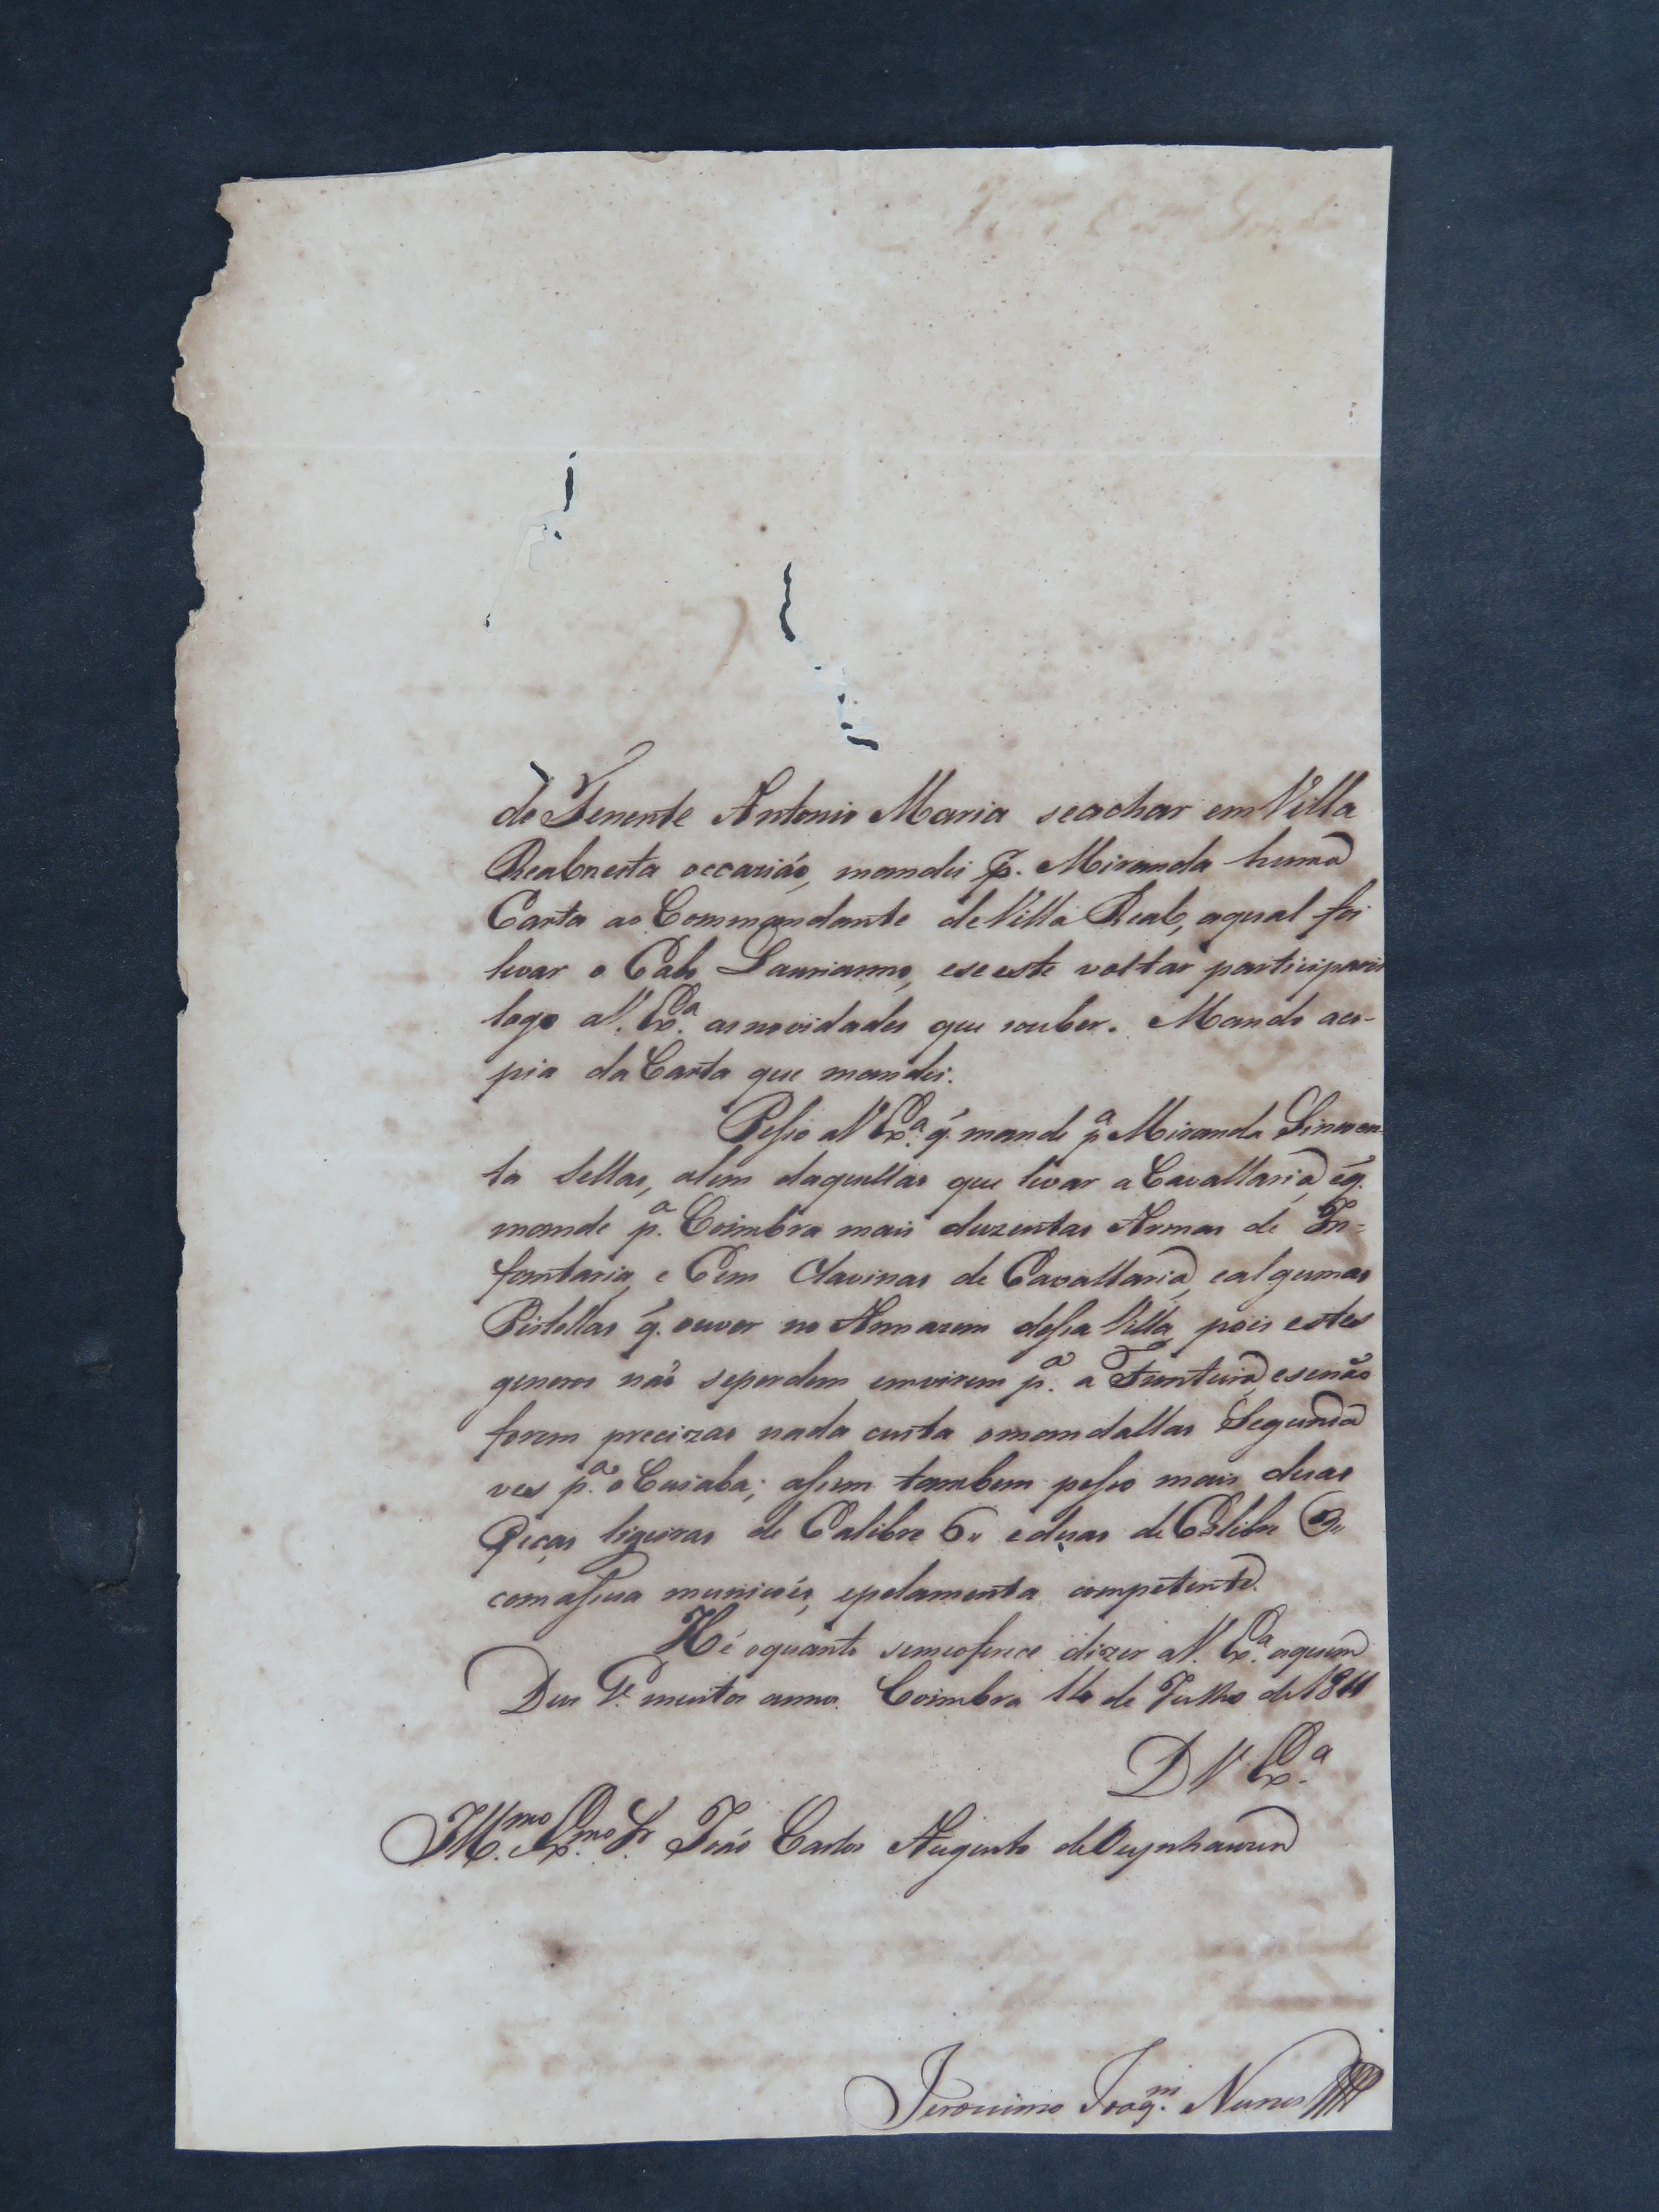 de Tenente Antonio Maria seachar em Villa
Real nesta occazião, mandei p. Miranda huma
Carta ao Commandante de Villa Real, aqual foi
levar o Cabo Laurianno, eseeste voltar participarei
logo aV. Ex.ª asnovidades que souber. Mando aco-
pia da Carta que mandei.
Pesso aV Ex.ª q̃. mande p.ª Miranda Sincoen-
ta Sellas, alem daquellas que levar a Cavallaria, eq̃.
mande p.ª Coimbra mais duzentas Armas de In-
fantaria, e Cem Clavinas de Cavallaria, ealgumas
Pistollas q̃. ouver no Armazem dessa Villa, pois estes
generos não seperdem emvirem p.ª a Fronteira, esenão
forem precizas nada custa omandallas Segunda
ves p.ª o Cuiaba; assim tambem pesso mais duas
Peças ligeiras de Calibre 6,, eduas de Calibre 3,,
comassua munições, epalamenta competente.
Hé oquanto semeoferece dizer aV. Ex.ª aquem
Deus G.e muitos annos. Coimbra 14 de Julho de 1811
D V. Ex.ª
Ill.mo Ex.mo Sr João Carlos Augusto de Oeynhausen
Jeronimo Joaq.m Nunes